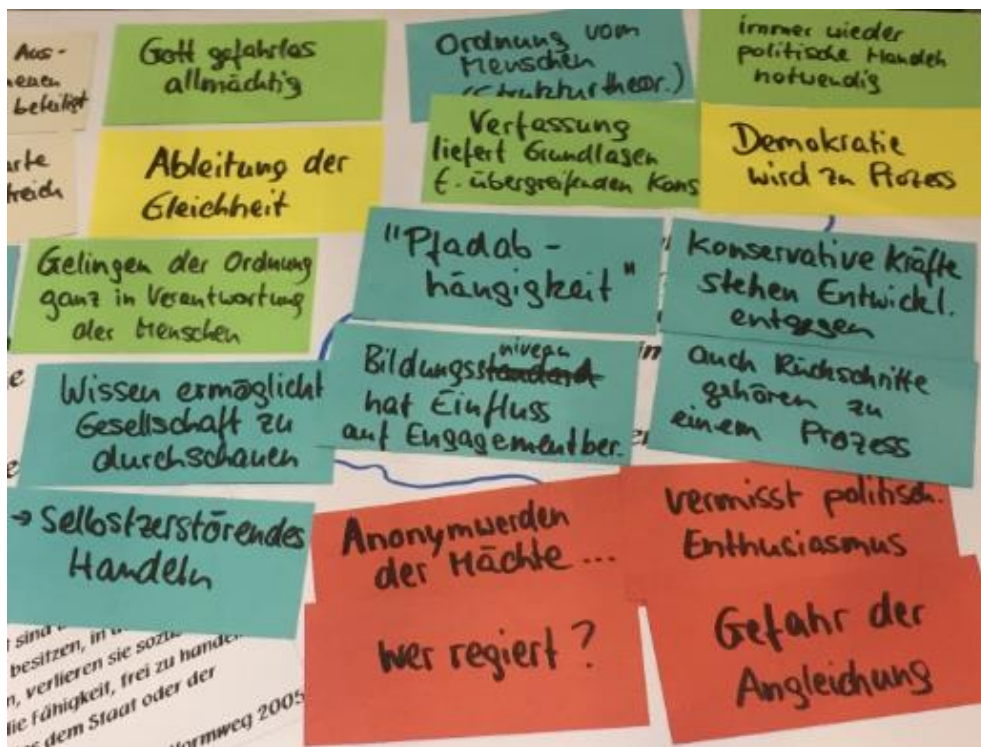 Aus-
beteiligt
Gott gefahrlos
allmächtig
Ordnung vom
Menschen
(Strukturtheor.)
immer wieder
politische Handeln
notwendig
Ableitung der
Gleichheit
Verfassung
liefert Grundlagen
f. übergreifenden Kons
Demokratie
wird zu Prozess
Gelingen der Ordnung
ganz in Verantwortung
der Menschen
"Pfadab-
hängigkeit"
Konservative Kräfte
stehen Entwickl.
entgegen
Wissen ermöglicht
Gesellschaft zu
durchschauen
niveau
Bildungsstandard
hat Einfluss
auf Engagementber.
auch Rückschritte
gehören zu
einem Prozess
→ Selbstzerstörendes
Handeln
Anonymwerden
der Mächte ...
vermisst politisch.
Enthusiasmus
wer regiert?
Gefahr der
Angleichung
sind
besitzen, in
verlieren sie
die Fähigkeit, frei zu
dem Staat oder der
2005